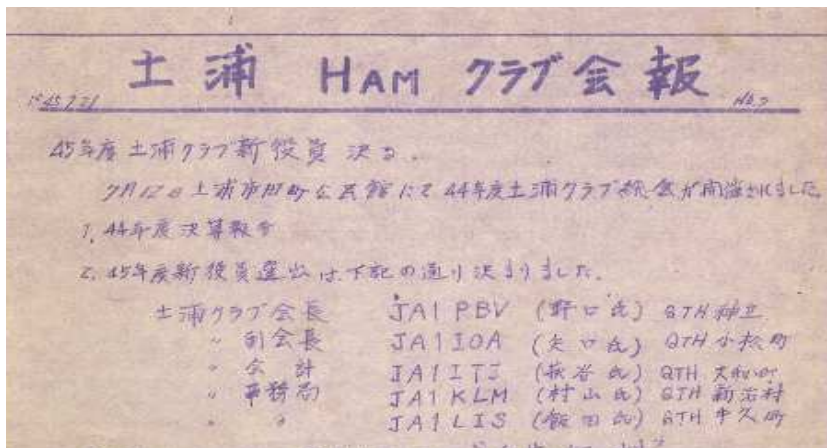 土浦 HAM クラブ会報
45.7.21
No.7
45年度土浦クラブ新役員決る.
7月12日土浦市田町公民館にて44年度土浦クラブ総会が開催されました
1.44年度決算報告
2.45年度新役員選出は下記の通り決まりました.
土浦クラブ会長 JA1PBV (野口氏) QTH 神立
〃 副会長 JA1IOA (矢口氏) QTH 小松町
〃 会計 JA1ITJ (荻谷氏) QTH 大和町
〃 事務局 JA1KLM (村山氏) QTH 新治村
〃 〃 JA1LIS (飯田氏) QTH 牛久町